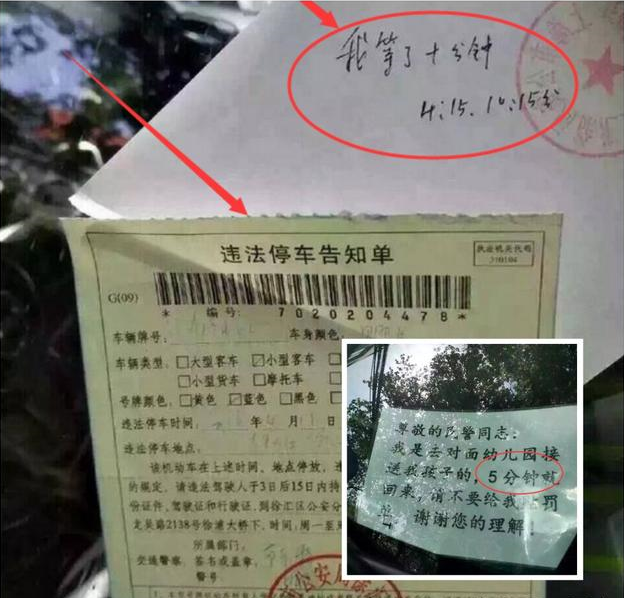 我等了十分钟
违法停车告知单
执法机关代码
310104
G(09)
* 编号: 7020204478 *
车辆牌号: 车身颜色:
车辆类型: □大型客车 ☑小型客车
□小型货车 □摩托车
号牌颜色: □黄色 ☑蓝色 □黑色
违法停车时间: 年 4 月 日
违法停车地点:
该机动车在上述时间、地点停放,
的规定,请违法驾驶人于3日后15日内持
份证件、驾驶证和行驶证,到徐汇区公安分
龙吴路2138号徐浦大桥下,时间:周一至
所属部门:
交通警察, 签名或盖章:
警号
尊敬的民警同志:
我是去对面幼儿园接
送我孩子的,5分钟就
回来,请不要给我 罚
单,谢谢您的理解!